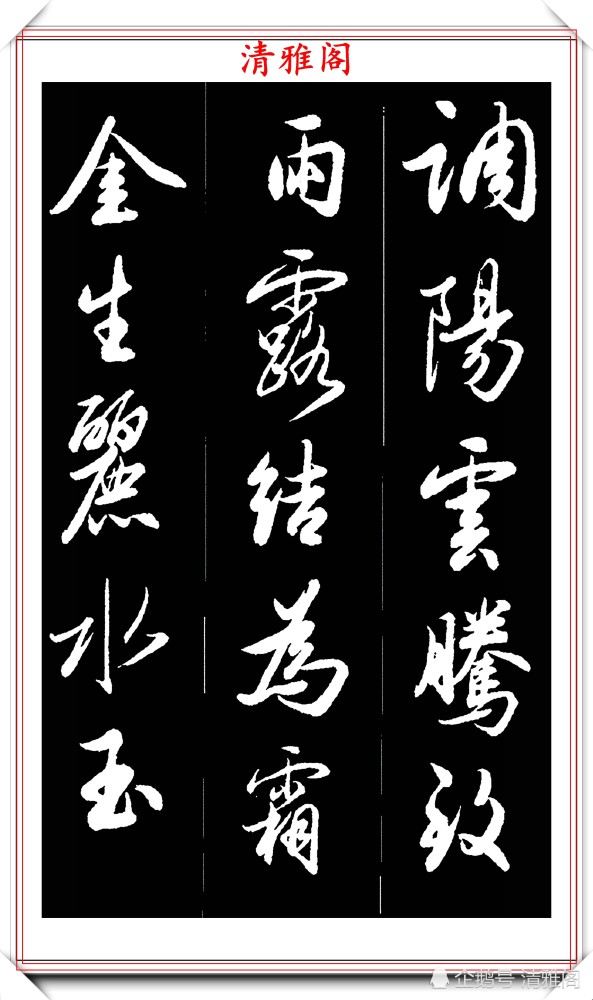 清雅阁
調陽雲騰致
雨露結為霜
金生麗水玉
企鹅号 清雅阁